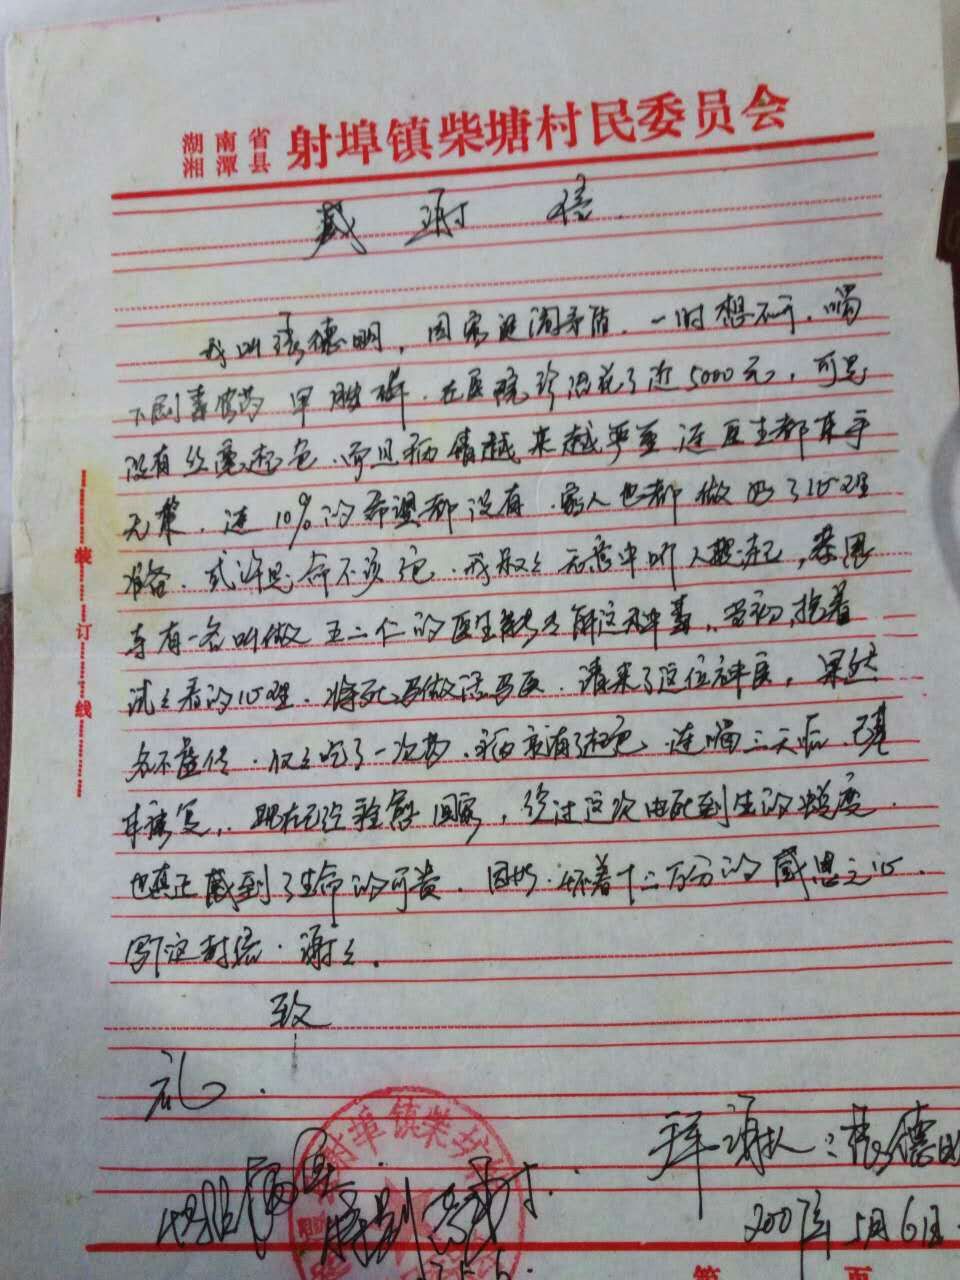 湖南省
湘潭县
射埠镇柴塘村民委员会
感谢信
我叫张德明，因家庭闹矛盾，一时想不开，喝
下剧毒农药甲胺磷，在医院诊治花了近5000元，可是
没有丝毫起色，而且病情越来越严重连医生都束手
无策，连10%的希望都没有，家人也都做好了心理
准备，或许是命不该绝，我叔叔无意中听人提起，
有一名叫做王二仁的医生能够解这种毒，当初抱着
试试看的心理，将死马做活马医，请来了这位神医，果然
名不虚传，仅仅吃了一次药，病就有了起色，连喝三天后，已基
本康复，现在已经痊愈回家，经过这次由死到生的
也真正感到了生命的可贵，因此，怀着十二万分的感恩之心
写下这封信，谢谢。
致
礼
装订线
射埠镇柴
拜谢人：张德明
2007年5月6日
第 页